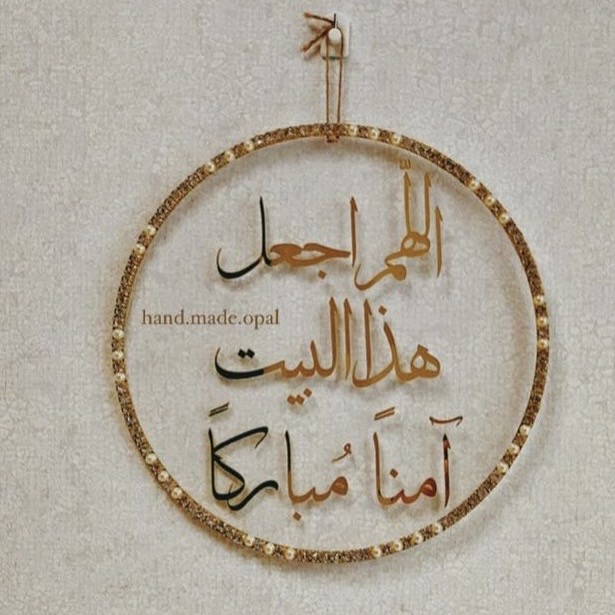 اللّهم اجعل
hand.made.opal
هذا البيت
آمناً مُباركاً